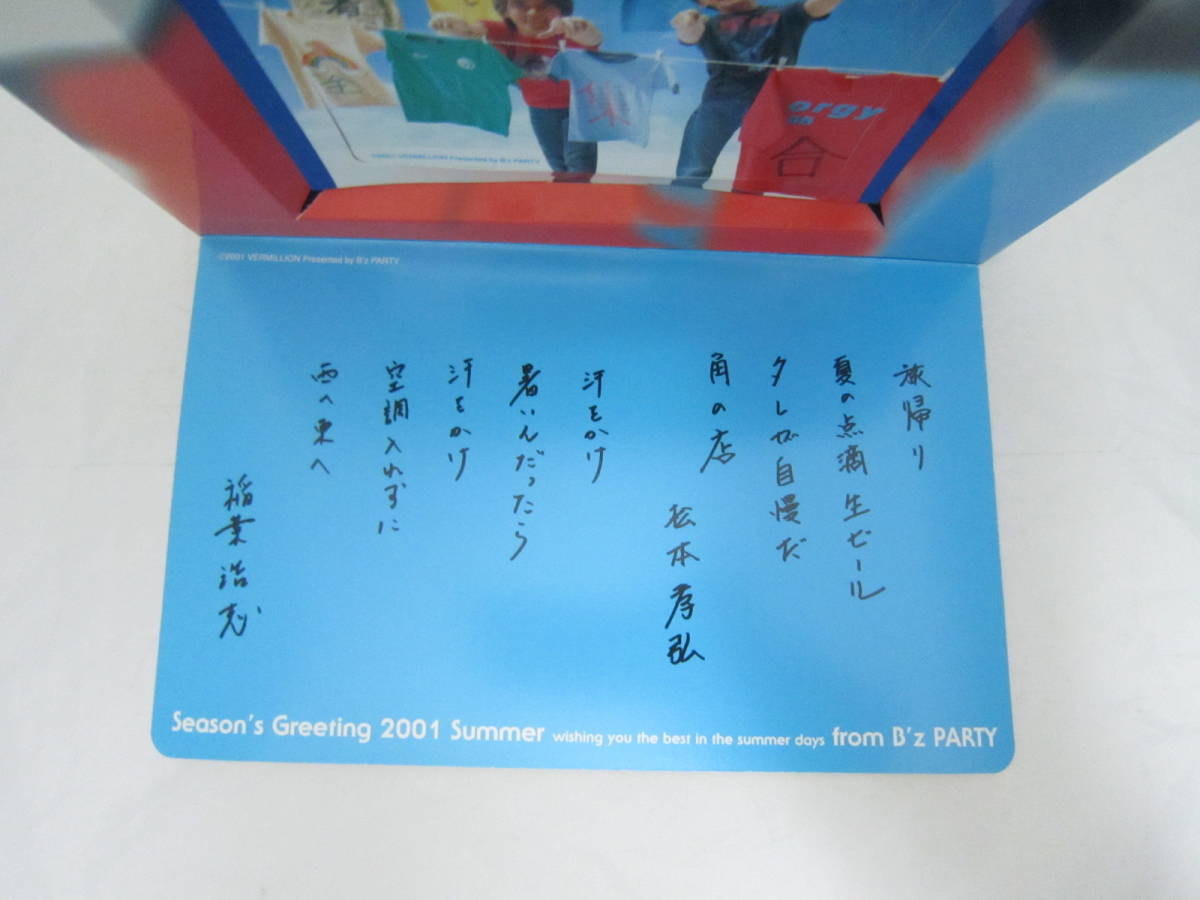 全
集
orgy
合
©2001 VERMILLION Presented by B'z PARTY
©2001 VERMILLION Presented by B'z PARTY
旅帰り
夏の点滴 生ビール
タレが自慢だ
角の店
松本孝弘
汗をかけ
暑いんだったら
汗をかけ
空調入れずに
西へ東へ
稲葉浩志
Season's Greeting 2001 Summer wishing you the best in the summer days from B'z PARTY